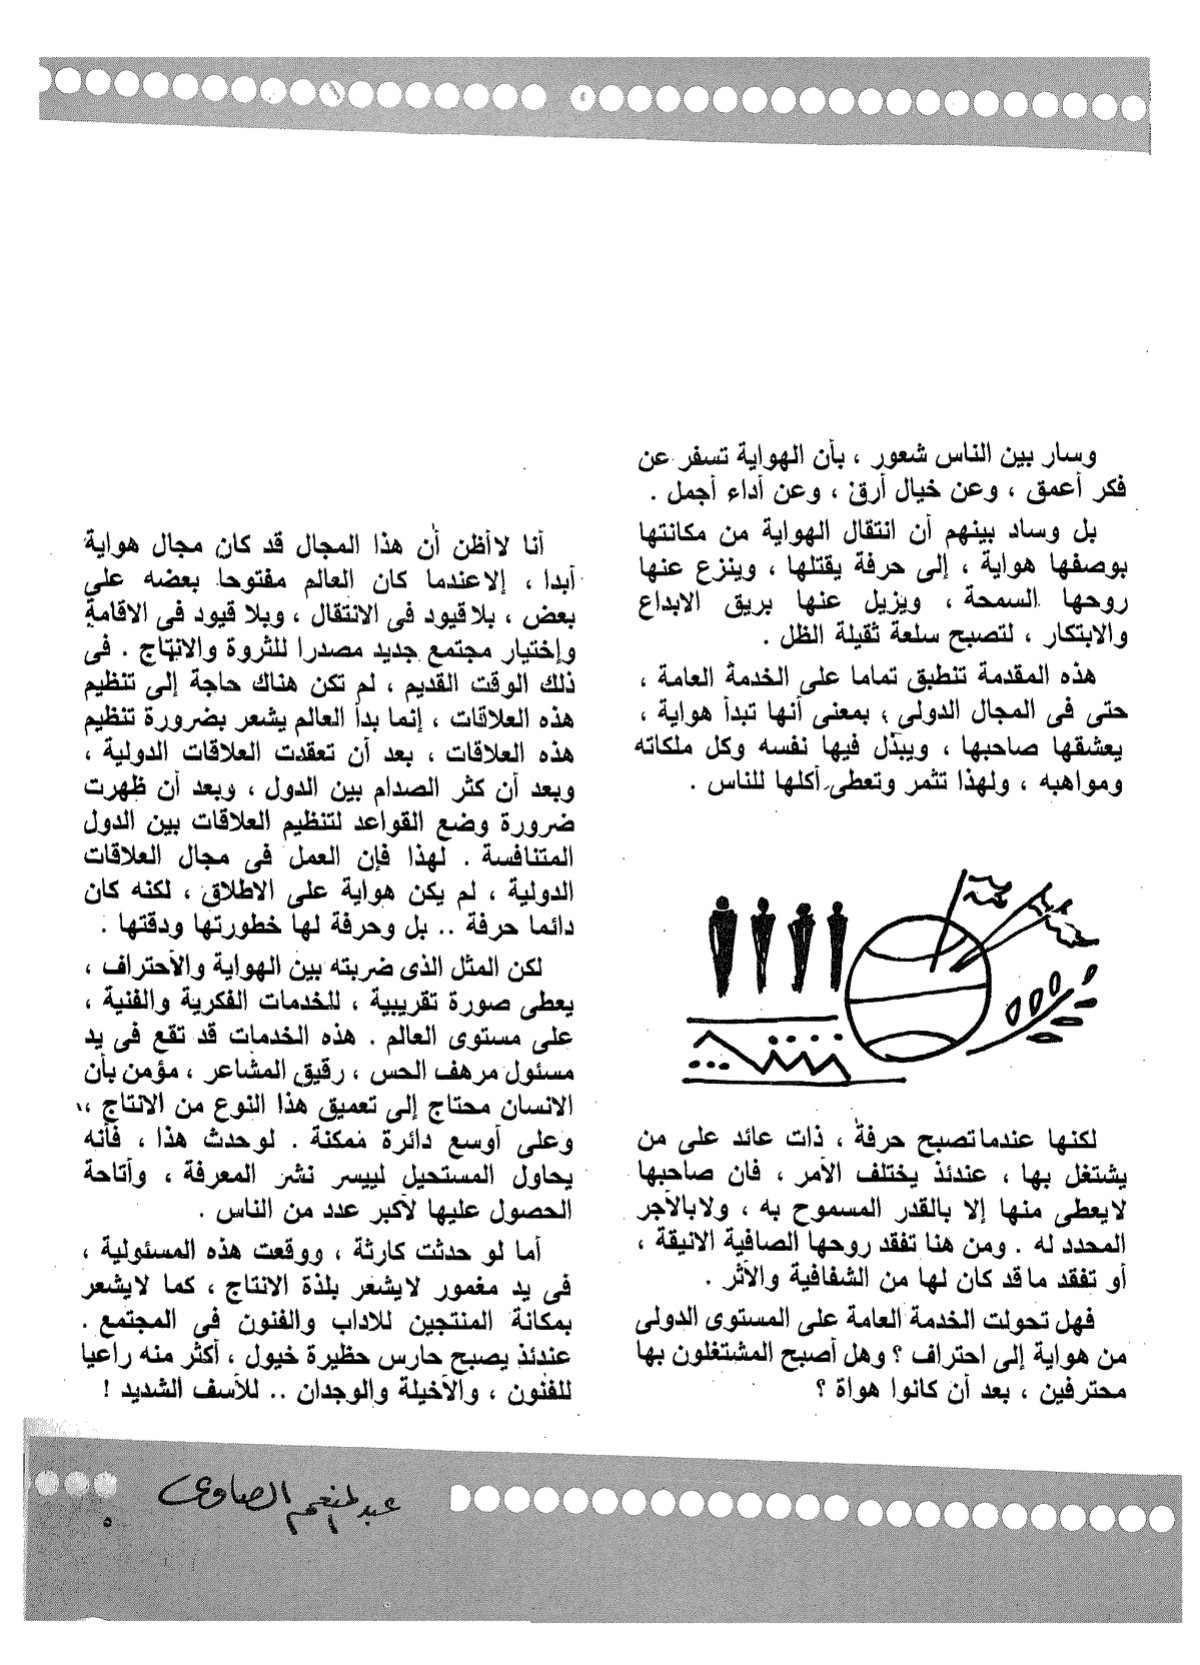 وسار بين الناس شعور ، بأن الهواية تسفر عن
فكر أعمق ، وعن خيال أرق ، وعن أداء أجمل .
بل وساد بينهم أن انتقال الهواية من مكانتها
بوصفها هواية ، إلى حرفة يقتلها ، وينزع عنها
روحها السمحة ، ويزيل عنها بريق الابداع
والابتكار ، لتصبح سلعة ثقيلة الظل .
هذه المقدمة تنطبق تماما على الخدمة العامة ،
حتى فى المجال الدولى ، بمعنى أنها تبدأ هواية ،
يعشقها صاحبها ، ويبذل فيها نفسه وكل ملكاته
ومواهبه ، ولهذا تثمر وتعطى أكلها للناس .
لكنها عندما تصبح حرفة ، ذات عائد على من
يشتغل بها ، عندئذ يختلف الأمر ، فان صاحبها
لايعطى منها إلا بالقدر المسموح به ، ولابالأجر
المحدد له . ومن هنا تفقد روحها الصافية الانيقة ،
أو تفقد ماقد كان لها من الشفافية والأثر .
فهل تحولت الخدمة العامة على المستوى الدولى
من هواية إلى احتراف ؟ وهل أصبح المشتغلون بها
محترفين ، بعد أن كانوا هواة ؟
أنا لاأظن أن هذا المجال قد كان مجال هواية
أبدا ، إلاعندما كان العالم مفتوحا بعضه على
بعض ، بلاقيود فى الانتقال ، وبلا قيود فى الاقامة
وإختيار مجتمع جديد مصدرا للثروة والانتاج . فى
ذلك الوقت القديم ، لم تكن هناك حاجة إلى تنظيم
هذه العلاقات ، إنما بدأ العالم يشعر بضرورة تنظيم
هذه العلاقات ، بعد أن تعقدت العلاقات الدولية ،
وبعد أن كثر الصدام بين الدول ، وبعد أن ظهرت
ضرورة وضع القواعد لتنظيم العلاقات بين الدول
المتنافسة . لهذا فإن العمل فى مجال العلاقات
الدولية ، لم يكن هواية على الاطلاق ، لكنه كان
دائما حرفة .. بل وحرفة لها خطورتها ودقتها .
لكن المثل الذى ضربته بين الهواية والأحتراف ،
يعطى صورة تقريبية ، للخدمات الفكرية والفنية ،
على مستوى العالم . هذه الخدمات قد تقع فى يد
مسئول مرهف الحس ، رقيق المشاعر ، مؤمن بأن
الانسان محتاج إلى تعميق هذا النوع من الانتاج ،
وعلى أوسع دائرة ممكنة . لوحدث هذا ، فأنه
يحاول المستحيل لييسر نشر المعرفة ، وأتاحة
الحصول عليها لأكبر عدد من الناس .
أما لو حدثت كارثة ، ووقعت هذه المسئولية ،
فى يد مغمور لايشعر بلذة الانتاج ، كما لايشعر
بمكانة المنتجين للاداب والفنون فى المجتمع .
عندئذ يصبح حارس حظيرة خيول ، أكثر منه راعيا
للفنون ، والأخيلة والوجدان .. للأسف الشديد !
عبد المنعم الصاوى
٥